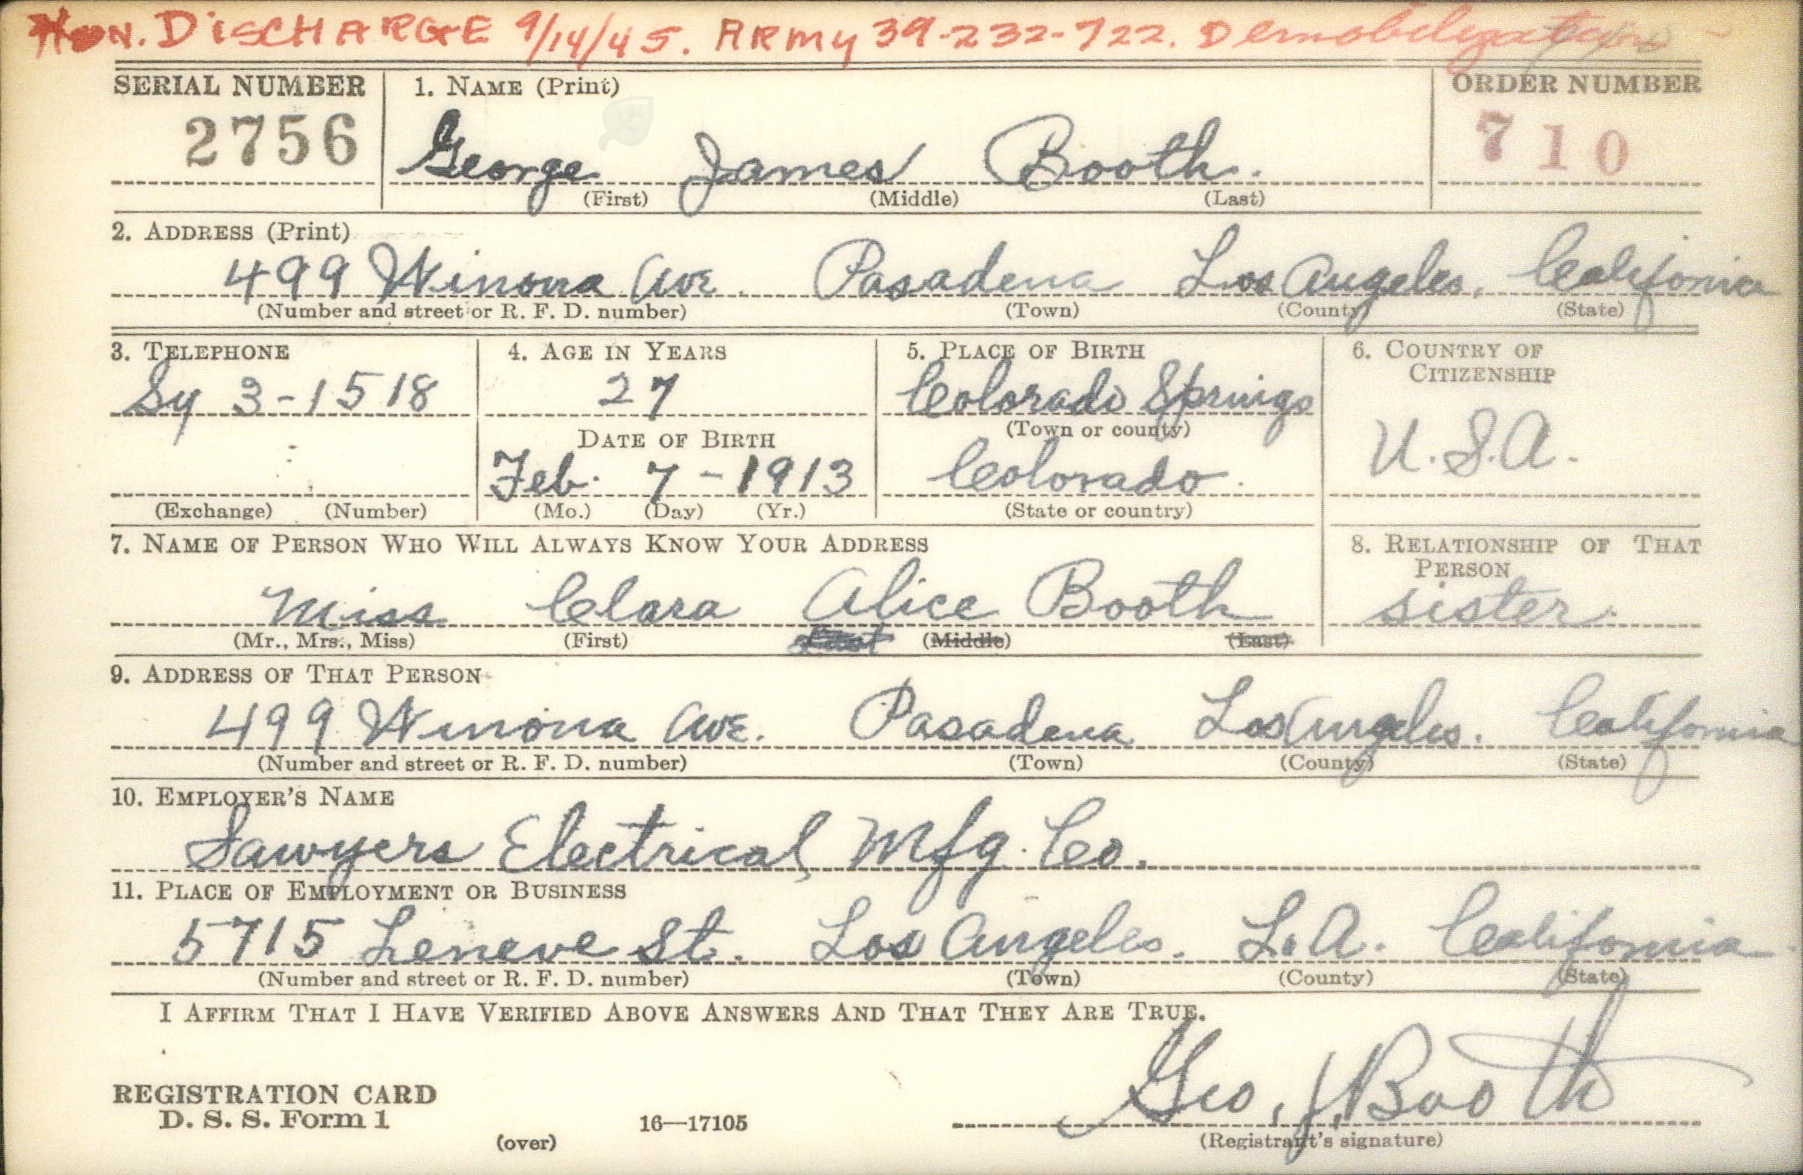 Hon. DISCHARGE 9/14/45. ARMY 39-232-722. Demobilization
SERIAL NUMBER 1. NAME (Print) ORDER NUMBER
2756 George James Booth. 710
(First) (Middle) (Last)
2. ADDRESS (Print)
499 Winona Ave. Pasadena Los Angeles, California
(Number and street or R. F. D. number) (Town) (County) (State)
3. TELEPHONE 4. AGE IN YEARS 5. PLACE OF BIRTH 6. COUNTRY OF CITIZENSHIP
Sy 3-1518 27 Colorado Springs
(Town or county)
DATE OF BIRTH U.S.A.
Feb. 7-1913 Colorado.
(Exchange) (Number) (Mo.) (Day) (Yr.) (State or country)
7. NAME OF PERSON WHO WILL ALWAYS KNOW YOUR ADDRESS 8. RELATIONSHIP OF THAT PERSON
Miss Clara Alice Booth sister.
(Mr., Mrs., Miss) (First) (Middle) (Last)
9. ADDRESS OF THAT PERSON
499 Winona Ave. Pasadena Los Angeles. California
(Number and street or R. F. D. number) (Town) (County) (State)
10. EMPLOYER'S NAME
Sawyers Electrical Mfg. Co.
11. PLACE OF EMPLOYMENT OR BUSINESS
5715 Leneve St. Los Angeles. L.A. California
(Number and street or R. F. D. number) (Town) (County) (State)
I AFFIRM THAT I HAVE VERIFIED ABOVE ANSWERS AND THAT THEY ARE TRUE.
REGISTRATION CARD Geo. J. Booth
D. S. S. Form 1 16—17105
(over) (Registrant's signature)